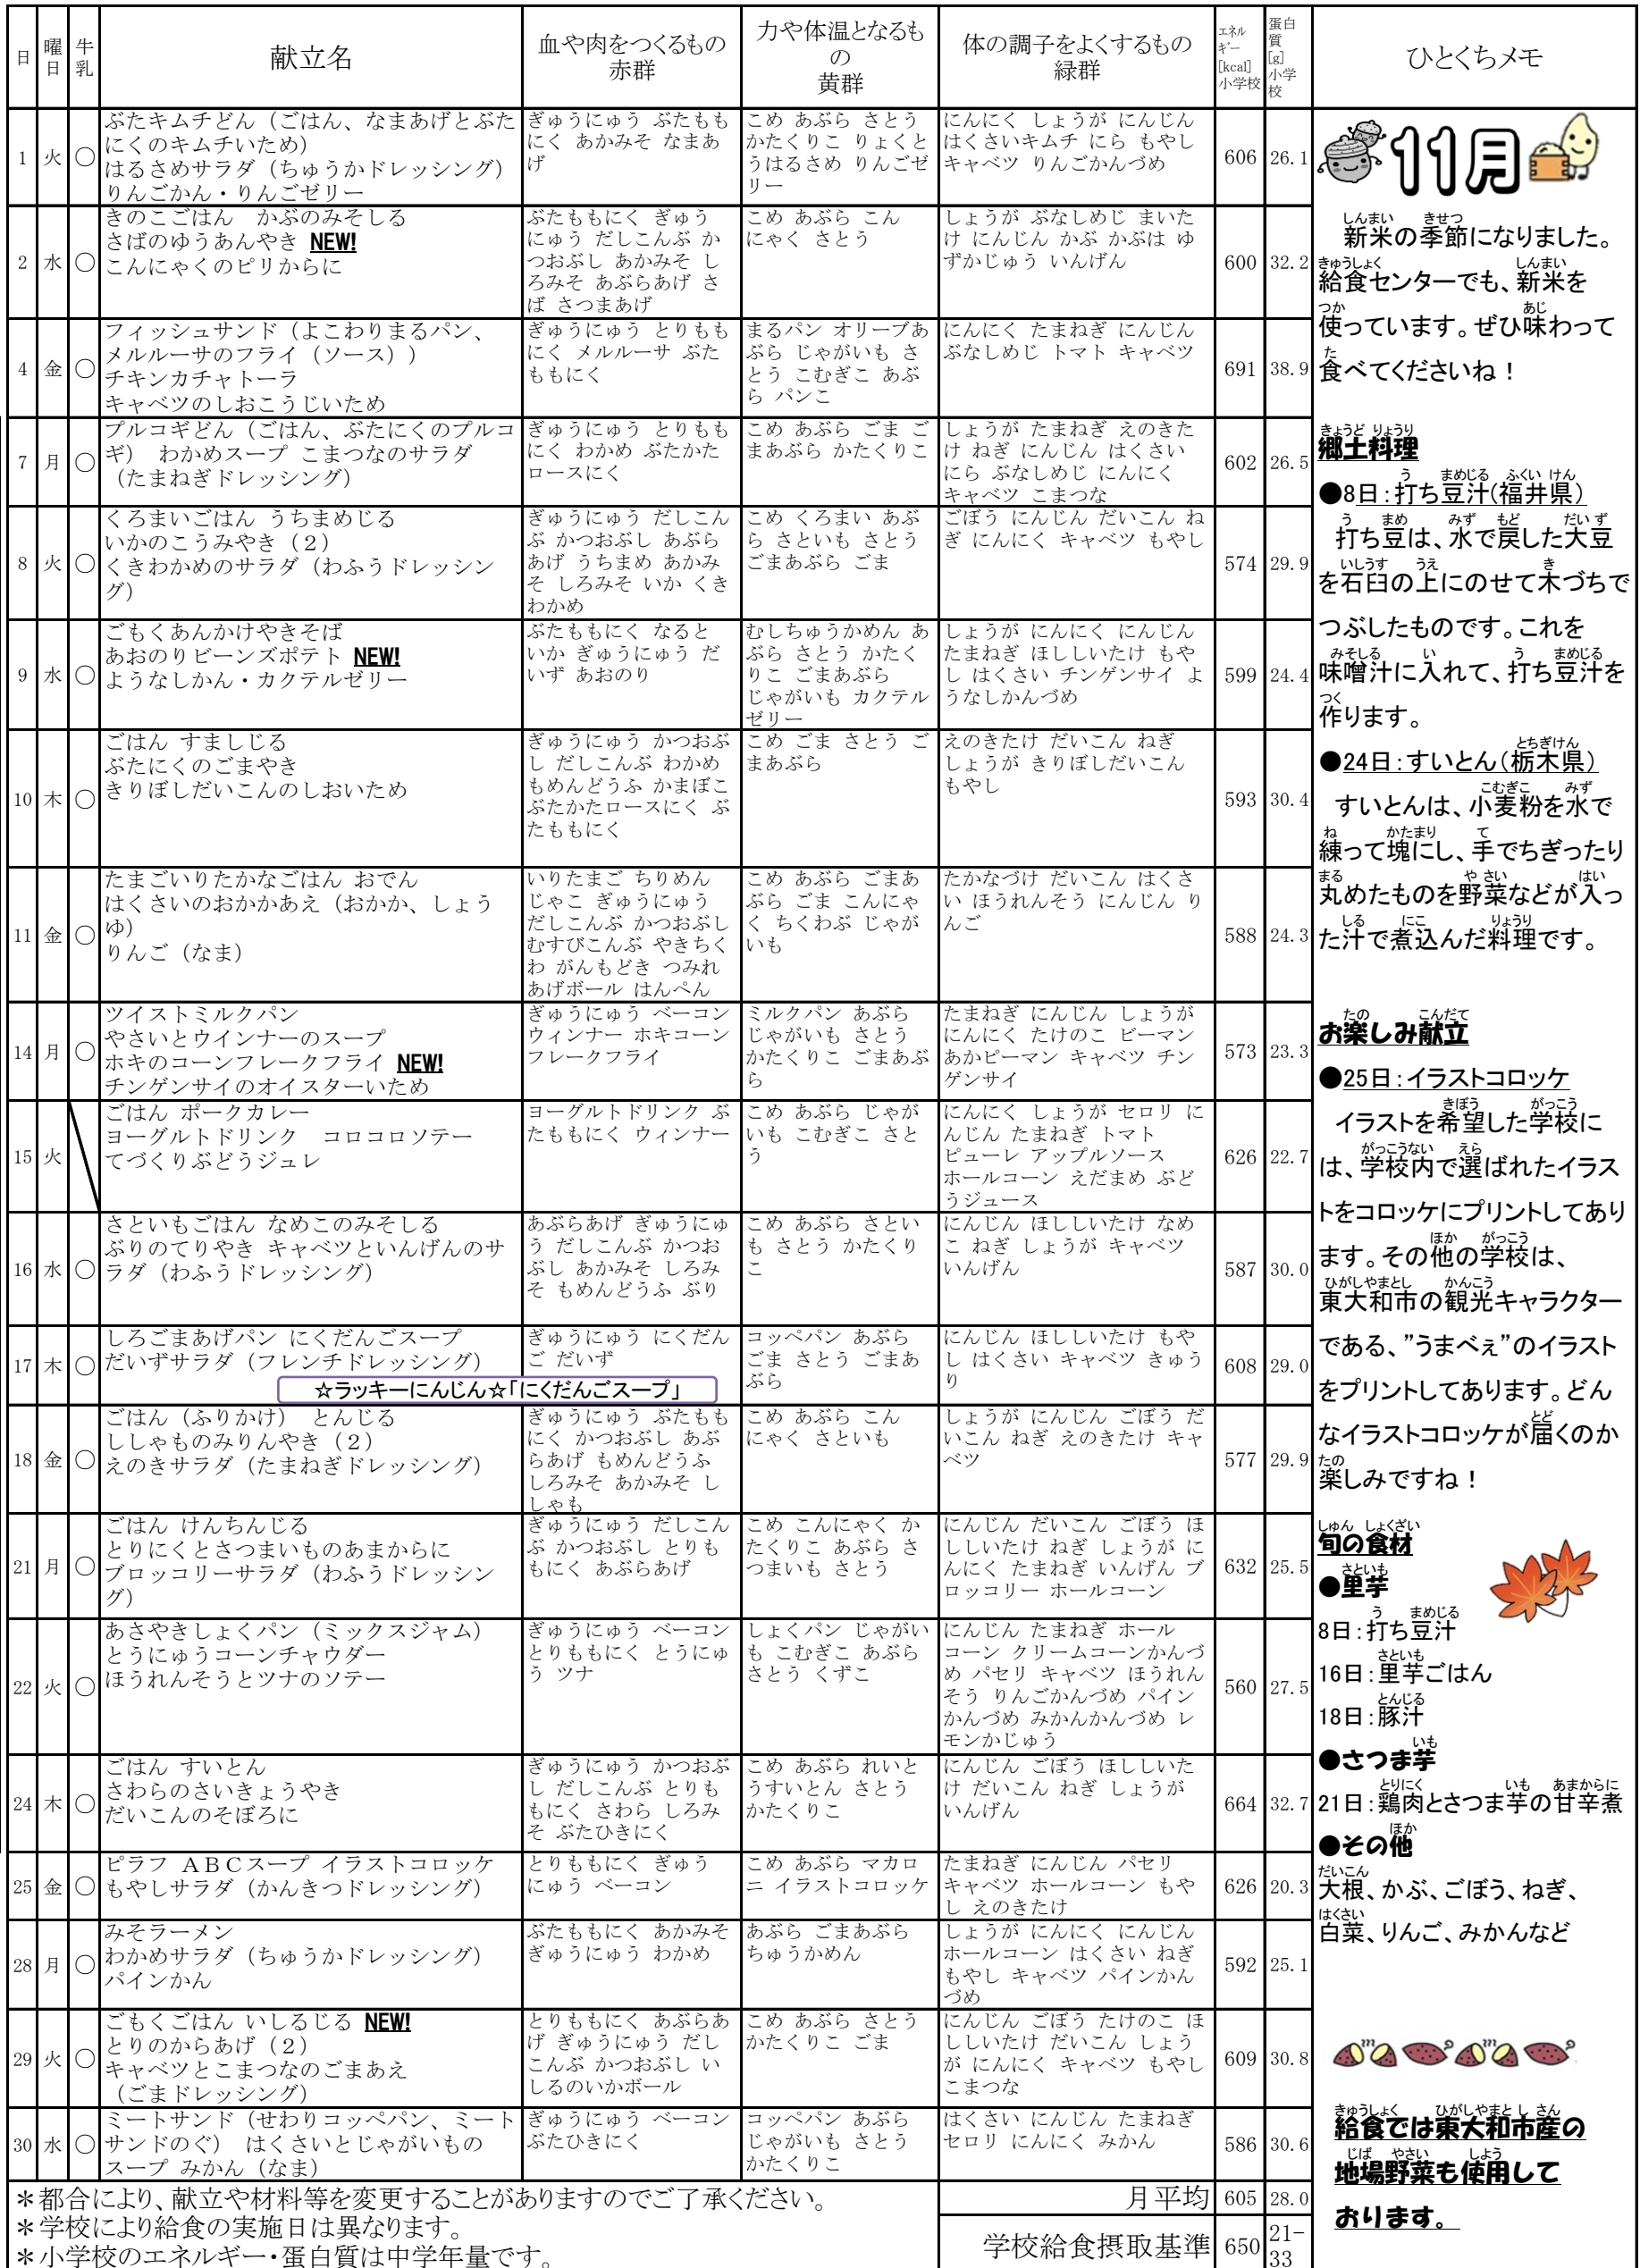 日 曜日 牛乳 献立名 血や肉をつくるもの 赤群 力や体温となるもの 黄群 体の調子をよくするもの 緑群 エネルギー[kcal]小学校 蛋白質[g]小学校 ひとくちメモ
1 火 ○
ぶたキムチどん（ごはん、なまあげとぶた
にくのキムチいため）
はるさめサラダ（ちゅうかドレッシング）
りんごかん・りんごゼリー
ぎゅうにゅう ぶたもも
にく あかみそ なまあ
げ
こめ あぶら さとう
かたくりこ りょくと
うはるさめ りんごゼ
リー
にんにく しょうが にんじん
はくさいキムチ にら もやし
キャベツ りんごかんづめ
606 26.1
2 水 ○
きのこごはん　かぶのみそしる
さばのゆうあんやき NEW!
こんにゃくのピリからに
ぶたももにく ぎゅう
にゅう だしこんぶ か
つおぶし あかみそ し
ろみそ あぶらあげ さ
ば さつまあげ
こめ あぶら こん
にゃく さとう
しょうが ぶなしめじ まいた
け にんじん かぶ かぶは ゆ
ずかじゅう いんげん
600 32.2
4 金 ○
フィッシュサンド（よこわりまるパン、
メルルーサのフライ（ソース））
チキンカチャトーラ
キャベツのしおこうじいため
ぎゅうにゅう とりもも
にく メルルーサ ぶた
ももにく
まるパン オリーブあ
ぶら じゃがいも さ
とう こむぎこ あぶ
ら パンこ
にんにく たまねぎ にんじん
ぶなしめじ トマト キャベツ
691 38.9
7 月 ○
プルコギどん（ごはん、ぶたにくのプルコ
ギ）　わかめスープ こまつなのサラダ
（たまねぎドレッシング）
ぎゅうにゅう とりもも
にく わかめ ぶたかた
ロースにく
こめ あぶら ごま ご
まあぶら かたくりこ
しょうが たまねぎ えのきた
け ねぎ にんじん はくさい
にら ぶなしめじ にんにく
キャベツ こまつな
602 26.5
8 火 ○
くろまいごはん うちまめじる
いかのこうみやき（2）
くきわかめのサラダ（わふうドレッシン
グ）
ぎゅうにゅう だしこん
ぶ かつおぶし あぶら
あげ うちまめ あかみ
そ しろみそ いか くき
わかめ
こめ くろまい あぶ
ら さといも さとう
ごまあぶら ごま
ごぼう にんじん だいこん ね
ぎ にんにく キャベツ もやし
574 29.9
9 水 ○
ごもくあんかけやきそば
あおのりビーンズポテト NEW!
ようなしかん・カクテルゼリー
ぶたももにく なると
いか ぎゅうにゅう だ
いず あおのり
むしちゅうかめん あ
ぶら さとう かたく
りこ ごまあぶら
じゃがいも カクテル
ゼリー
しょうが にんにく にんじん
たまねぎ ほししいたけ もや
し はくさい チンゲンサイ よ
うなしかんづめ
599 24.4
10 木 ○
ごはん すましじる
ぶたにくのごまやき
きりぼしだいこんのしおいため
ぎゅうにゅう かつおぶ
し だしこんぶ わかめ
もめんどうふ かまぼこ
ぶたかたロースにく ぶ
たももにく
こめ ごま さとう ご
まあぶら
えのきたけ だいこん ねぎ
しょうが きりぼしだいこん
もやし
593 30.4
11 金 ○
たまごいりたかなごはん おでん
はくさいのおかかあえ（おかか、しょう
ゆ）
りんご（なま）
いりたまご ちりめん
じゃこ ぎゅうにゅう
だしこんぶ かつおぶし
むすびこんぶ やきちく
わ がんもどき つみれ
あげボール はんぺん
こめ あぶら ごまあ
ぶら ごま こんにゃ
く ちくわぶ じゃが
いも
たかなづけ だいこん はくさ
い ほうれんそう にんじん り
んご
588 24.3
14 月 ○
ツイストミルクパン
やさいとウインナーのスープ
ホキのコーンフレークフライ NEW!
チンゲンサイのオイスターいため
ぎゅうにゅう ベーコン
ウィンナー ホキコーン
フレークフライ
ミルクパン あぶら
じゃがいも さとう
かたくりこ ごまあぶ
ら
たまねぎ にんじん しょうが
にんにく たけのこ ピーマン
あかピーマン キャベツ チン
ゲンサイ
573 23.3
15 火
ごはん ポークカレー
ヨーグルトドリンク　コロコロソテー
てづくりぶどうジュレ
ヨーグルトドリンク ぶ
たももにく ウィンナー
こめ あぶら じゃが
いも こむぎこ さと
う
にんにく しょうが セロリ に
んじん たまねぎ トマト
ピューレ アップルソース
ホールコーン えだまめ ぶど
うジュース
626 22.7
16 水 ○
さといもごはん なめこのみそしる
ぶりのてりやき キャベツといんげんのサ
ラダ（わふうドレッシング）
あぶらあげ ぎゅうにゅ
う だしこんぶ かつお
ぶし あかみそ しろみ
そ もめんどうふ ぶり
こめ あぶら さとい
も さとう かたくり
こ
にんじん ほししいたけ なめ
こ ねぎ しょうが キャベツ
いんげん
587 30.0
17 木 ○
しろごまあげパン にくだんごスープ
だいずサラダ（フレンチドレッシング）
☆ラッキーにんじん☆「にくだんごスープ」
ぎゅうにゅう にくだん
ご だいず
コッペパン あぶら
ごま さとう ごまあ
ぶら
にんじん ほししいたけ もや
し はくさい キャベツ きゅう
り
608 29.0
18 金 ○
ごはん（ふりかけ）　とんじる
ししゃものみりんやき（2）
えのきサラダ（たまねぎドレッシング）
ぎゅうにゅう ぶたもも
にく かつおぶし あぶ
らあげ もめんどうふ
しろみそ あかみそ し
しゃも
こめ あぶら こん
にゃく さといも
しょうが にんじん ごぼう だ
いこん ねぎ えのきたけ キャ
ベツ
577 29.9
21 月 ○
ごはん けんちんじる
とりにくとさつまいものあまからに
ブロッコリーサラダ（わふうドレッシン
グ）
ぎゅうにゅう だしこん
ぶ かつおぶし とりも
もにく あぶらあげ
こめ こんにゃく か
たくりこ あぶら さ
つまいも さとう
にんじん だいこん ごぼう ほ
ししいたけ ねぎ しょうが に
んにく たまねぎ いんげん ブ
ロッコリー ホールコーン
632 25.5
22 火 ○
あさやきしょくパン（ミックスジャム）
とうにゅうコーンチャウダー
ほうれんそうとツナのソテー
ぎゅうにゅう ベーコン
とりももにく とうにゅ
う ツナ
しょくパン じゃがい
も こむぎこ あぶら
さとう くずこ
にんじん たまねぎ ホール
コーン クリームコーンかんづ
め パセリ キャベツ ほうれん
そう りんごかんづめ パイン
かんづめ みかんかんづめ レ
モンかじゅう
560 27.5
24 木 ○
ごはん すいとん
さわらのさいきょうやき
だいこんのそぼろに
ぎゅうにゅう かつおぶ
し だしこんぶ とりも
もにく さわら しろみ
そ ぶたひきにく
こめ あぶら れいと
うすいとん さとう
かたくりこ
にんじん ごぼう ほししいた
け だいこん ねぎ しょうが
いんげん
664 32.7
25 金 ○
ピラフ ＡＢＣスープ イラストコロッケ
もやしサラダ（かんきつドレッシング）
とりももにく ぎゅう
にゅう ベーコン
こめ あぶら マカロ
ニ イラストコロッケ
たまねぎ にんじん パセリ
キャベツ ホールコーン もや
し えのきたけ
626 20.3
28 月 ○
みそラーメン
わかめサラダ（ちゅうかドレッシング）
パインかん
ぶたももにく あかみそ
ぎゅうにゅう わかめ
あぶら ごまあぶら
ちゅうかめん
しょうが にんにく にんじん
ホールコーン はくさい ねぎ
もやし キャベツ パインかん
づめ
592 25.1
29 火 ○
ごもくごはん いしるじる NEW!
とりのからあげ（2）
キャベツとこまつなのごまあえ
（ごまドレッシング）
とりももにく あぶらあ
げ ぎゅうにゅう だし
こんぶ かつおぶし い
しるのいかボール
こめ あぶら さとう
かたくりこ ごま
にんじん ごぼう たけのこ ほ
ししいたけ だいこん しょう
が にんにく キャベツ もやし
こまつな
609 30.8
30 水 ○
ミートサンド（せわりコッペパン、ミート
サンドのぐ）　はくさいとじゃがいもの
スープ みかん（なま）
ぎゅうにゅう ベーコン
ぶたひきにく
コッペパン あぶら
じゃがいも さとう
かたくりこ
はくさい にんじん たまねぎ
セロリ にんにく みかん
586 30.6
＊都合により、献立や材料等を変更することがありますのでご了承ください。
＊学校により給食の実施日は異なります。
＊小学校のエネルギー・蛋白質は中学年量です。
月平均 605 28.0
学校給食摂取基準 650 21-33
11月
しんまい きせつ
新米の季節になりました。
きゅうしょく しんまい
給食センターでも、新米を
つか あじ
使っています。ぜひ味わって
た
食べてくださいね！
きょうど りょうり
郷土料理
う まめじる ふくい けん
●8日：打ち豆汁(福井県)
う まめ みず もど だいず
打ち豆は、水で戻した大豆
いしうす うえ き
を石臼の上にのせて木づちで
つぶしたものです。これを
みそしる い う まめじる
味噌汁に入れて、打ち豆汁を
つく
作ります。
とちぎけん
●24日：すいとん(栃木県)
こむぎこ みず
すいとんは、小麦粉を水で
ね かたまり て
練って塊にし、手でちぎったり
まる やさい はい
丸めたものを野菜などが入っ
しる にこ りょうり
た汁で煮込んだ料理です。
たの こんだて
お楽しみ献立
●25日：イラストコロッケ
きぼう がっこう
イラストを希望した学校に
がっこうない えら
は、学校内で選ばれたイラス
トをコロッケにプリントしてあり
ほか がっこう
ます。その他の学校は、
ひがしやまとし かんこう
東大和市の観光キャラクター
である、”うまべぇ”のイラスト
をプリントしてあります。どん
とど
なイラストコロッケが届くのか
たの
楽しみですね！
しゅん しょくざい
旬の食材
さといも
●里芋
う まめじる
8日：打ち豆汁
さといも
16日：里芋ごはん
とんじる
18日：豚汁
いも
●さつま芋
とりにく いも あまからに
21日：鶏肉とさつま芋の甘辛煮
ほか
●その他
だいこん
大根、かぶ、ごぼう、ねぎ、
はくさい
白菜、りんご、みかんなど
きゅうしょく ひがしやまとし さん
給食では東大和市産の
じば やさい しよう
地場野菜も使用して
おります。